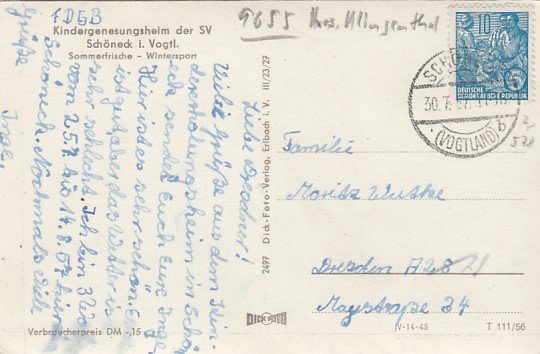 FDGB
Kindergenesungsheim der SV
Schöneck i. Vogtl.
Sommerfrische - Wintersport
9655
Liebe
Viele Grüße aus dem Kin-
dererholungsheim in Schön-
eck sendet Euch Eure Inge.
Hier ist es sehr schön. Essen
ist gut aber das Wetter ist
sehr schlecht. Ich bin 3 Wo
vom 25.7. bis 14.8.57 hier
in Schöneck. Nochmals viele
Grüße
Inge.
2497 Dick-Foto-Verlag, Erlbach i. V. III/23/27
DICK FOTO
Verbraucherpreis DM -,15
10
DEUTSCHE
DEMOKRATISCHE REPUBLIK
SCHÖNECK
30.7.57
(VOGTLAND)
b
Familie
Moritz Wutzke
Dresden A28
21
Maystraße 34
IV-14-45
T 111/56